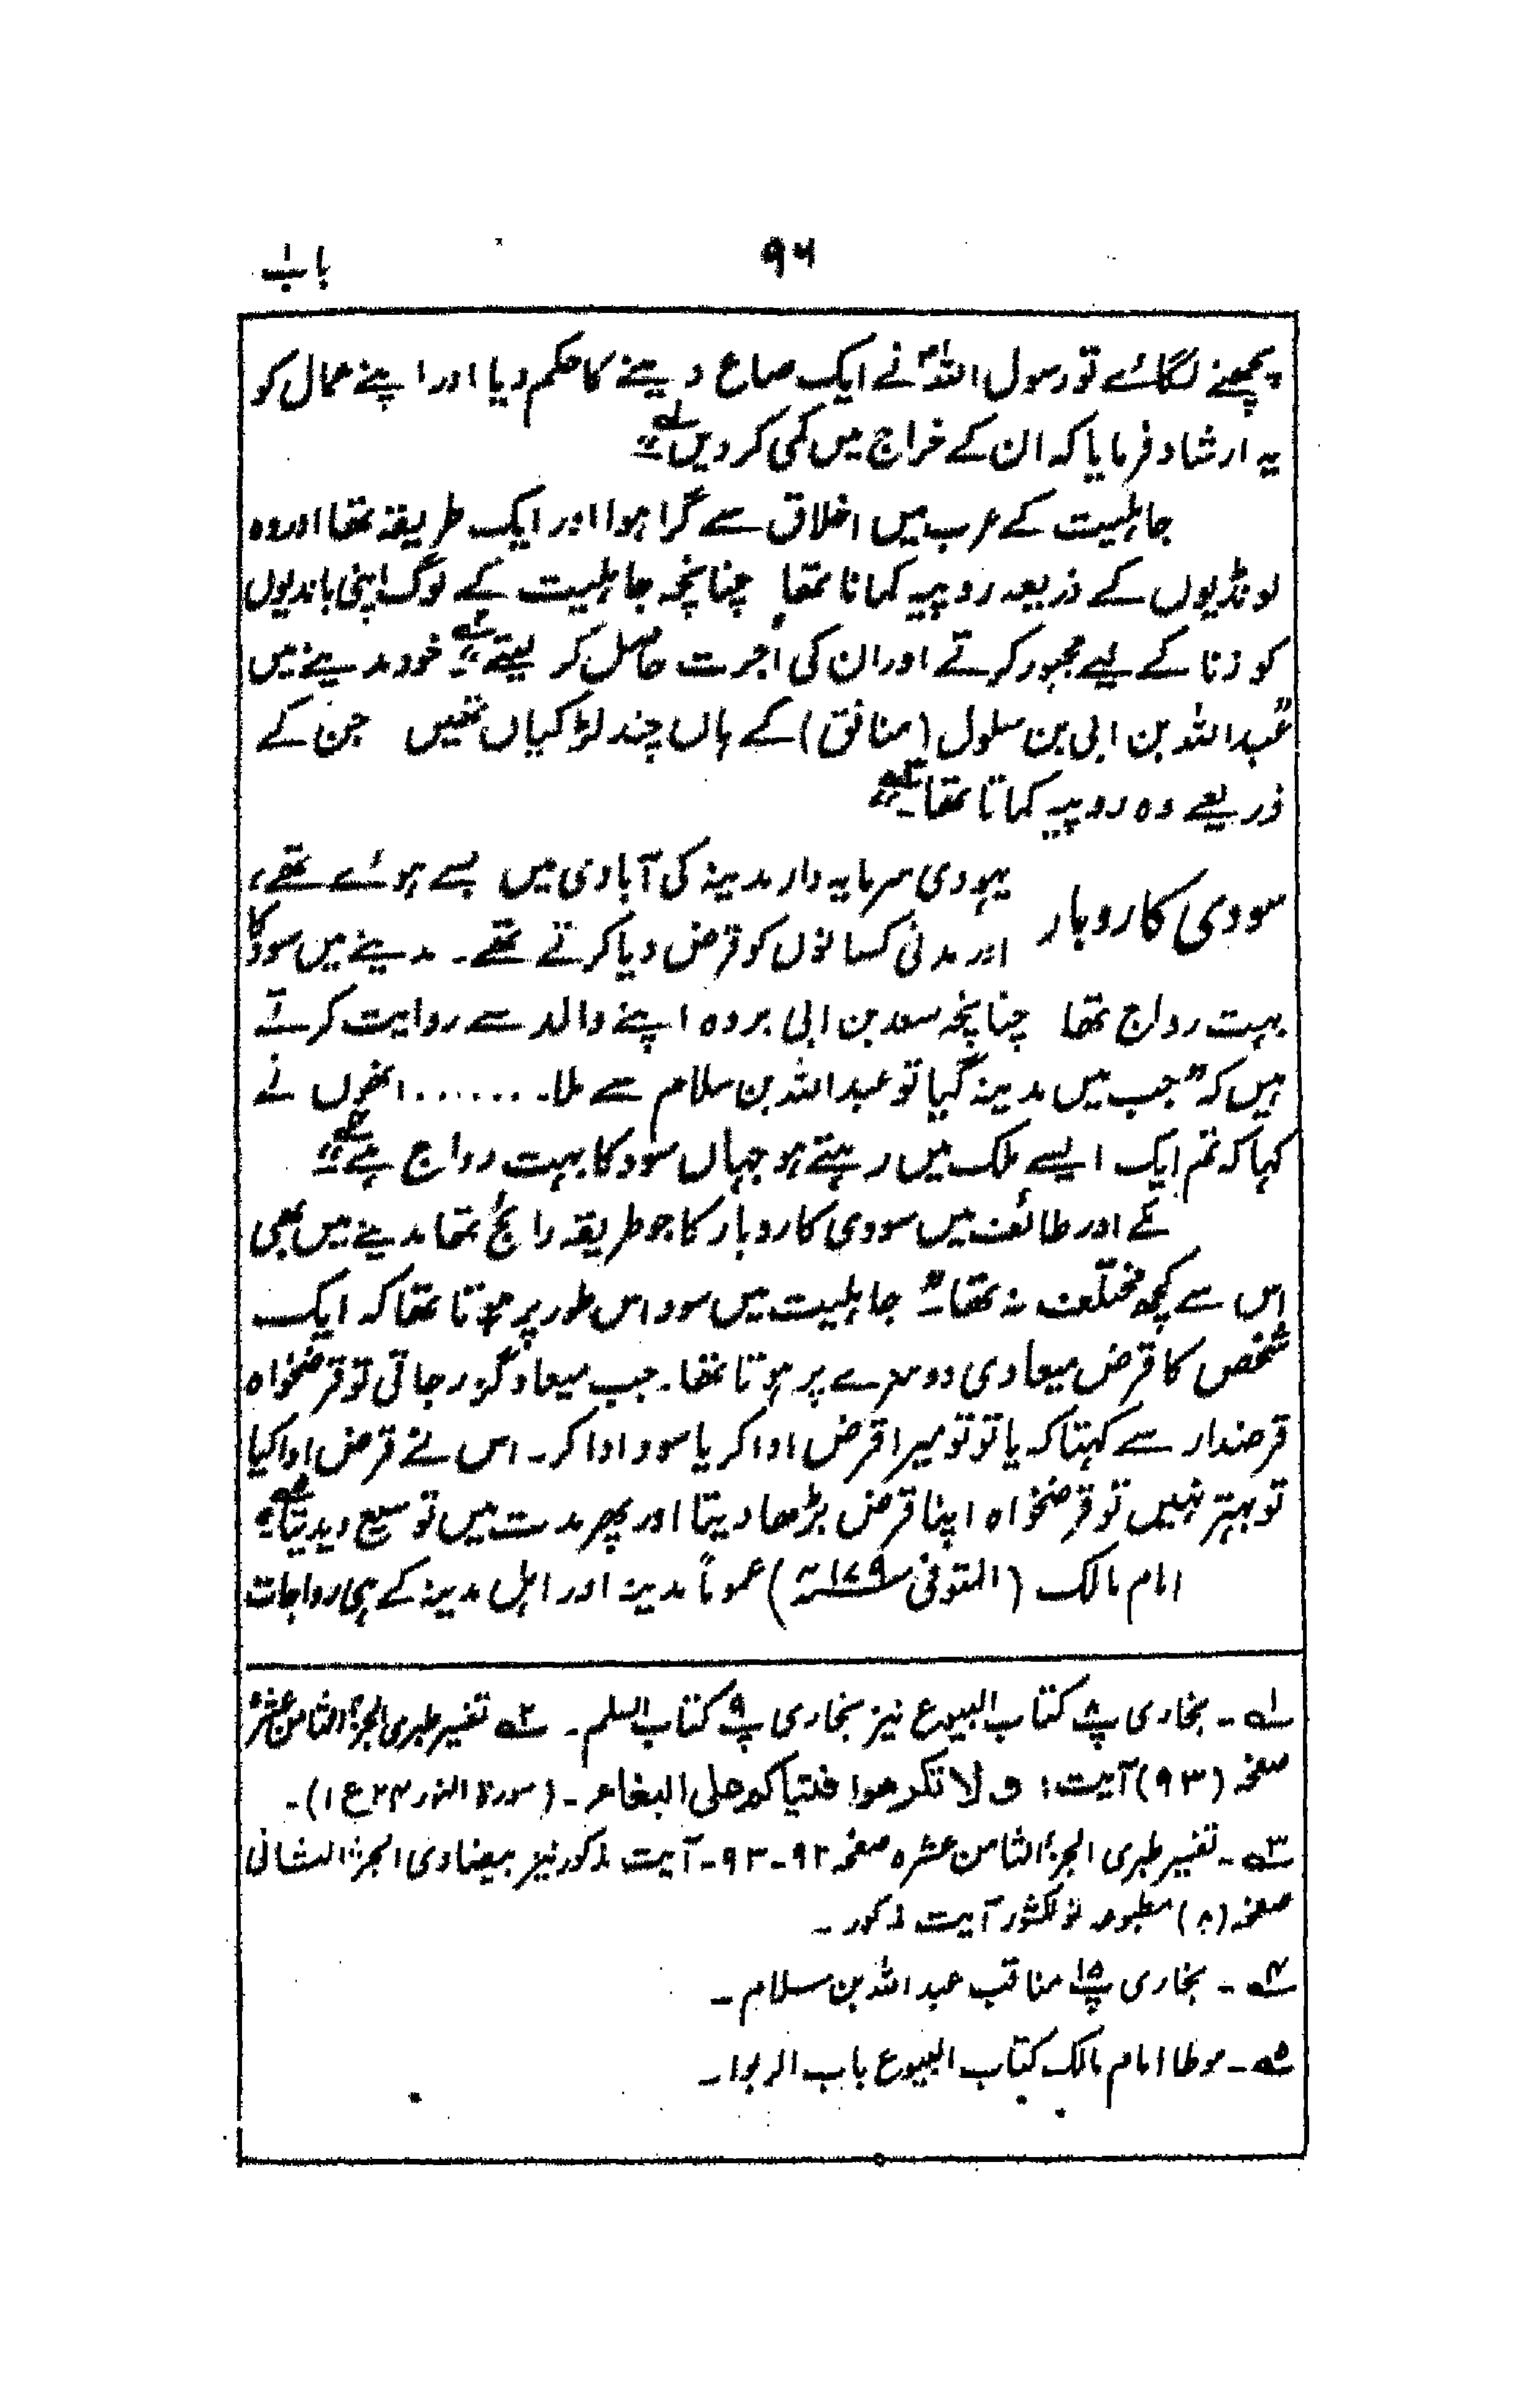 ۹۶
باب۱
پچھنے لگائے تو رسول اللہؐ نے ایک صاع دینے کا حکم دیا اور اپنے عمال کو
یہ ارشاد فرمایا کہ ان کے خراج میں کمی کر دیں"۱؎
جاہلیت کے عرب میں اخلاق سے گرا ہوا اور ایک طریقہ تھا اور وہ
لونڈیوں کے ذریعہ روپیہ کمانا تھا چنانچہ جاہلیت کے لوگ اپنی باندیوں
کو زنا کے لیے مجبور کرتے اور ان کی اُجرت حاصل کر لیتے"۲؎ خود مدینے میں
"عبداللہ بن ابی بن سلول (منافق) کے ہاں چند لڑکیاں تھیں جن کے
ذریعے وہ روپیہ کماتا تھا۔"۳؎
سودی کاروبار
یہودی سرمایہ دار مدینہ کی آبادی میں بسے ہوئے تھے،
اور مدنی کسانوں کو قرض دیا کرتے تھے۔ مدینے میں سود کا
بہت رواج تھا چنانچہ سعد بن ابی بردہ اپنے والد سے روایت کرتے
ہیں کہ "جب میں مدینہ گیا تو عبداللہ بن سلام سے ملا۔....... انھوں نے
کہا کہ تم ایک ایسے ملک میں رہتے ہو جہاں سود کا بہت رواج ہے"۴؎
مکے اور طائف میں سودی کاروبار کا جو طریقہ رائج تھا مدینے میں بھی
اس سے کچھ مختلف نہ تھا۔" جاہلیت میں سود اس طور پر ہوتا تھا کہ ایک
شخص کا قرض میعادی دوسرے پر ہوتا تھا۔ جب میعاد گزر جاتی تو قرضخواہ
قرضدار سے کہتا کہ یا تو تو میرا قرض ادا کر یا سود ادا کر۔ اس نے قرض ادا کیا
تو بہتر نہیں تو قرضخواہ اپنا قرض بڑھا دیتا اور پھر مدت میں توسیع دیدیتا"۵؎
امام مالک (المتوفی ۱۷۹ھ) عموماً مدینہ اور اہل مدینہ کے ہی رواجات
۱؎ ۔ بخاری پ۸ کتاب البیوع نیز بخاری پ۹ کتاب السلم ۔ ۲؎ تفسیر طبری الجزء الثامن عشر
صفحہ (۹۳) آیت: و لا تکرھوا فتیاتکم علی البغاء ۔ (سورۃ النور ۲۴ ع ۱)۔
۳؎ ۔ تفسیر طبری الجزء الثامن عشرہ صفحہ ۹۲ ۔ ۹۳ ۔ آیت مذکور نیز بیضاوی الجزء الثانی
صفحہ (۸) مطبوعہ نولکشور آیت مذکور ۔
۴؎ ۔ بخاری پ۱۵ مناقب عبداللہ بن سلام ۔
۵؎ ۔ موطا امام مالک کتاب البیوع باب الربوا ۔